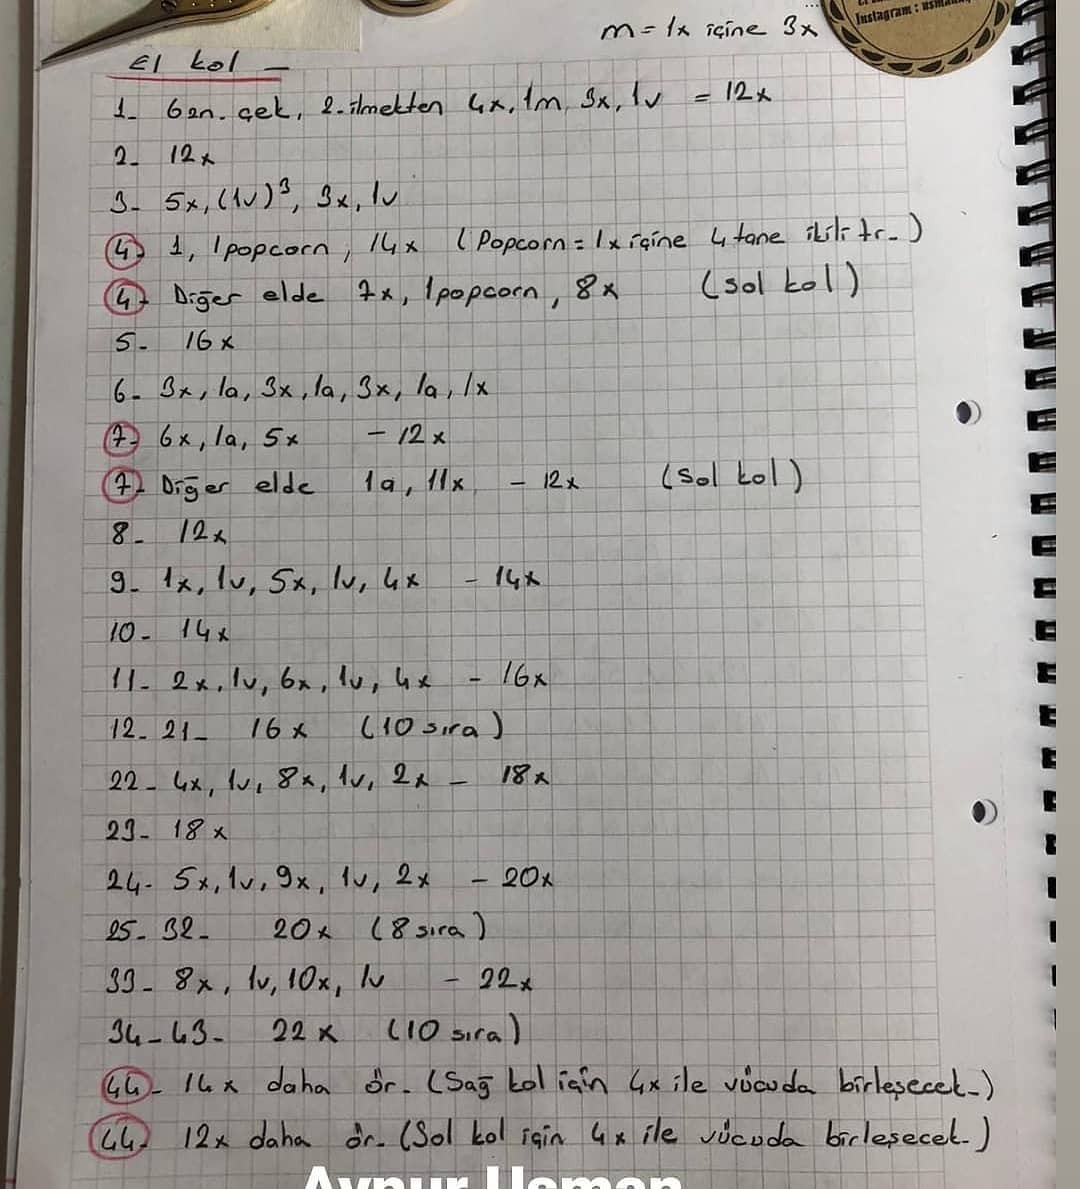 Instagram :
m = 1x içine 3x
El kol -
1- 6 zn. çek, 2. ilmekten 4x, 1m, 3x, 1v = 12x
2- 12x
3- 5x, (1v)³, 3x, 1v
4- 1, 1popcorn, 14x ( Popcorn = 1x içine 4 tane ikili tr. )
4- Diğer elde 7x, 1popcorn, 8x (sol kol)
5- 16x
6- 3x, 1a, 3x, 1a, 3x, 1a, 1x
7- 6x, 1a, 5x - 12x
7- Diğer elde 1a, 11x - 12x (Sol kol)
8- 12x
9- 1x, 1v, 5x, 1v, 4x - 14x
10- 14x
11- 2x, 1v, 6x, 1v, 4x - 16x
12- 21- 16x (10 sıra)
22- 4x, 1v, 8x, 1v, 2x - 18x
23- 18x
24- 5x, 1v, 9x, 1v, 2x - 20x
25- 32- 20x (8 sıra)
33- 8x, 1v, 10x, 1v - 22x
34-43- 22x (10 sıra)
44- 14x daha ör. (Sağ kol için 4x ile vücuda birleşecek.)
44- 12x daha ör. (Sol kol için 4x ile vücuda birleşecek.)
Aynur Usman